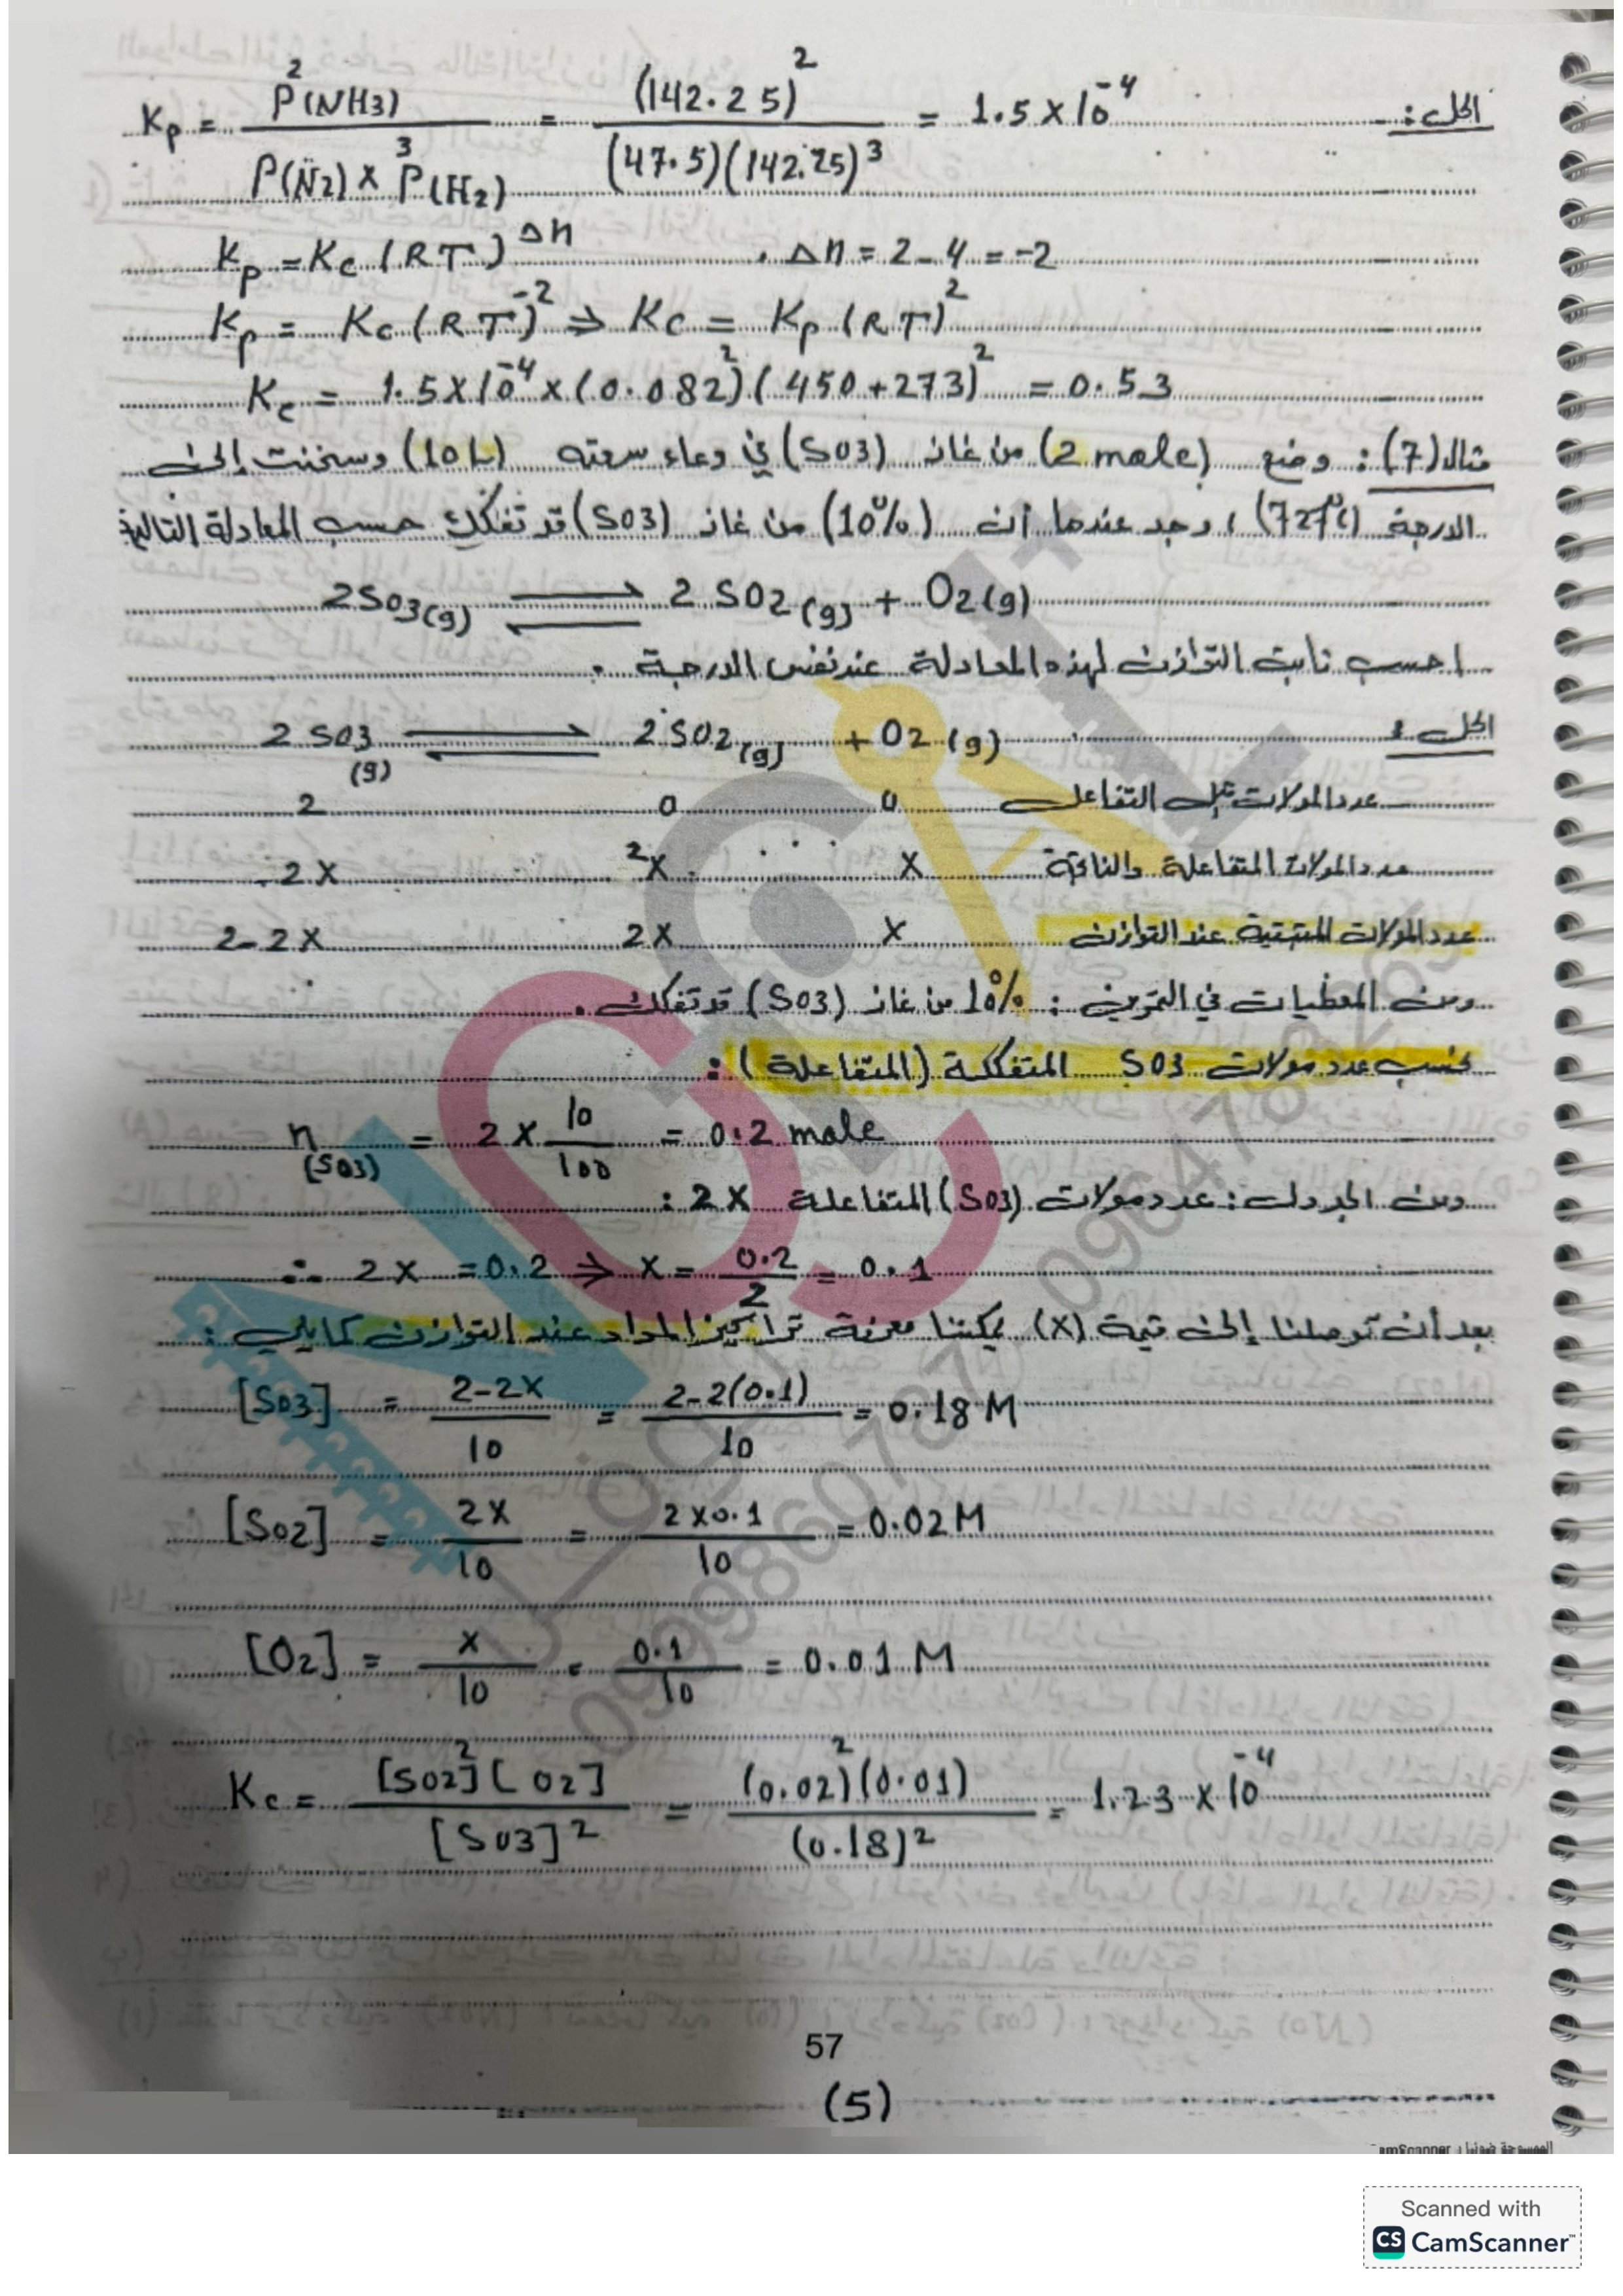 الحل: Kp = P²(NH3) / P(N2) x P³(H2) = (142.25)² / (47.5)(142.25)³ = 1.5 x 10⁻⁴
Kp = Kc (RT)^Δn . Δn = 2-4 = -2
Kp = Kc (RT)⁻² ⇒ Kc = Kp (RT)²
Kc = 1.5 x 10⁻⁴ x (0.082)² (450+273)² = 0.53
مثال (7): وضع (2 mole) من غاز (SO3) في وعاء سعته (10L) وسخنت إلى
الدرجة (727°C)، وجد عندها أن (10%) من غاز (SO3) قد تفكك حسب المعادلة التالية
2SO3(g) ⇌ 2SO2(g) + O2(g)
احسب ثابت التوازن لهذه المعادلة عند نفس الدرجة .
الحل: 2SO3(g) ⇌ 2SO2(g) + O2(g)
2 0 0 عدد المولات قبل التفاعل
-2x 2x x عدد المولات المتفاعلة والناتجة
2-2x 2x x عدد المولات المتبقية عند التوازن
ومن المعطيات في التمرين: 10% من غاز (SO3) قد تفكك .
نحسب عدد مولات SO3 المتفككة (المتفاعلة):
n(SO3) = 2 x 10/100 = 0.2 mole
ومن الجدول: عدد مولات (SO3) المتفاعلة 2x:
∴ 2x = 0.2 ⇒ x = 0.2/2 = 0.1
بعد أن توصلنا إلى قيمة (x) يمكننا معرفة تراكيز المواد عند التوازن كما يلي:
[SO3] = 2-2x / 10 = 2-2(0.1) / 10 = 0.18 M
[SO2] = 2x / 10 = 2x0.1 / 10 = 0.02 M
[O2] = x / 10 = 0.1 / 10 = 0.01 M
Kc = [SO2]² [O2] / [SO3]² = (0.02)² (0.01) / (0.18)² = 1.23 x 10⁻⁴
57
(5)
CamScanner
Scanned with
CS CamScanner™